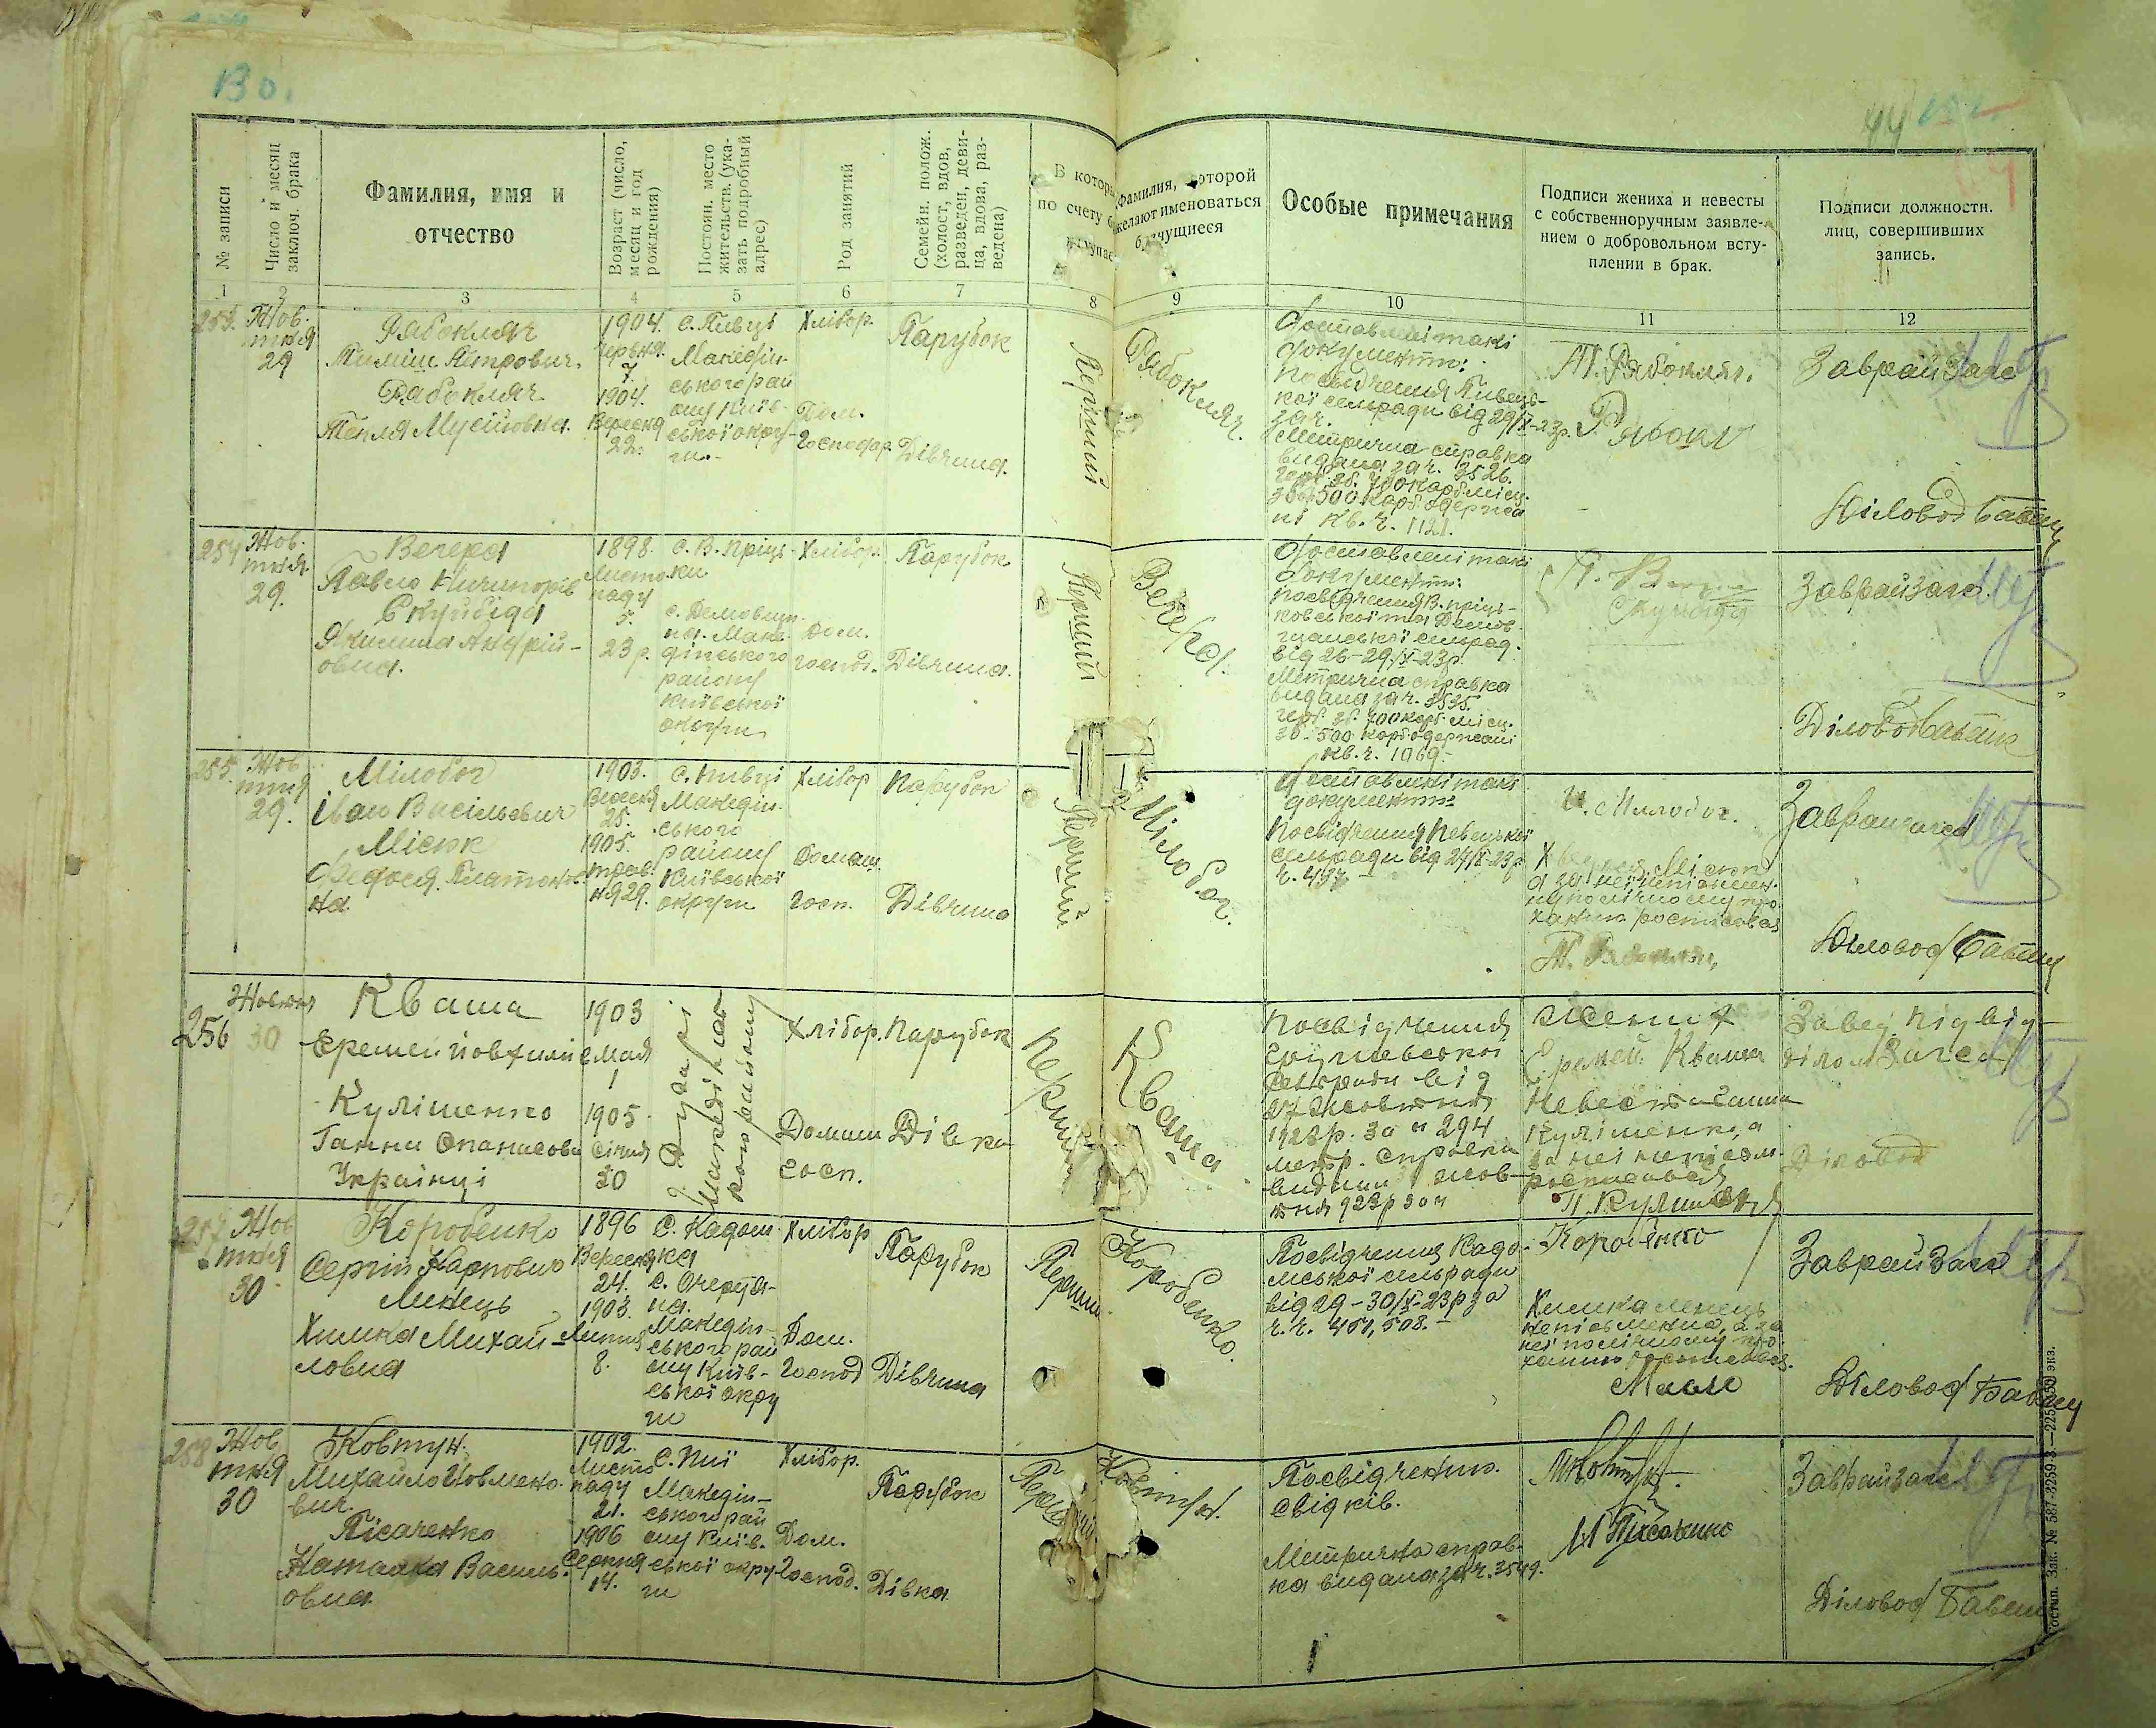 130.
44
№ записи
Число и месяц
заключ. брака
Фамилия, имя и
отчество
Возраст (число,
месяц и год
рождения)
Постоян. место
жительств. (ука-
зать подробный
адрес)
Род занятий
Семейн. полож.
(холост, вдов,
разведен, деви-
ца, вдова, раз-
ведена)
В котор
по счету
вступа
Фамилия, которой
желают именоваться
брачущиеся
Особые примечания
Подписи жениха и невесты
с собственноручным заявле-
нием о добровольном всту-
плении в брак.
Подписи должностн.
лиц, совершивших
запись.
1 2 3 4 5 6 7 8 9 10 11 12
253.
Жов-
тня
29
Рабокляч
Тиміш Петрович.
Рабокляч
Текля Мусіївна.
1904.
Червня
7
1904.
Вересня
22.
с. Пивці
Македін-
ського рай
ону Київ-
ської окру-
ги.
Хлібор.
Дом.
Господар.
Парубок
Дівчина.
Перший
Рябокляч.
Доставлені такі
документи:
Посвідчення Пивець-
кої сельради від 29/X-23р.
за ч.
Метрична справка
видана за ч. 3526.
500 карб одержа
ні кв. ч. 1121.
Т. Рябокляч.
Рябокл
ЗаврайЗагс
Діловод Бабич
254
Жов-
тня
29.
Вечера
Павло Ничипорів
Скуйбіда
Якилина Андрій-
овна.
1898.
Листо-
паду
5.
23 р.
с. В. Пріць-
ки
с. Демовщи-
на. Маке-
дінського
району
Київської
округи
Хлібор.
Дом.
госпód.
Парубок
Дівчина.
Перший
Вечера.
Доставлені такі
документи:
посвідчення В. пріць-
ковської та Демов-
щанської сельрад.
від 26-29/X-23р.
Метрична справка
видана за ч. 3535.
герб. зб. 400 карб. місц.
зб. 500 карб одержані
кв. ч. 1069-
П. Вечера
Скуйбіда
Заврайзагс.
Діловод Бабич
255.
Жов
тня
29.
Мілобог
Іван Васильевич
Місюк
Федося Платонов-
на
1903.
Вересня
25.
1905.
трав.
н929.
с. Пивці
Македін-
ського
району
Київської
округи
Хлібор
Домаш.
Госп.
Парубок
Дівчина
Перший
Мілобог.
Доставлені такі
документи:
Посвідчення Певецької
сельради від 27/X-23р
ч. 437
И. Милобог.
Місюк
а за неї неписьмен-
ну по лічному про-
ханню росписовая
Заврайзагса
Діловод Бабич
256
Жовтня
30
Кваша
Еремей Йовхимів
Кулішенко
Ганни Опанасовн
Українці
1903
мая
1
1905
Січня
30
Македінсько
кого району
Хлібор.
Домаш
Госп.
Парубок
Дівка
Перший
Кваша
Посвідчення
Грушевської
Сельради від
27 Жовтня
1923р. за н 294
метр. справка
видана жов-
тня 923р за н
жених
Еремей Кваша
Невеста Ганна
Кулішенко, а
за неї неписьм.
росписовся
П. Кулишенко
Завед. Підвід-
ділом Загса
Діловод
257
Жов
тня
30
Коробенко
Сергій Карпович
Линець
Химка Михай-
ловна
1896
Вересня
24.
1903.
Липня
8.
с. Кадом-
ка
с. Очеретя-
на.
Македін-
ського рай
ону Київ-
ської окру
ги
Хлібор
Дом.
Господ
Парубок
Дівчина
Перший
Коробенко.
Посвідчення Кадо-
мської сельради
від 29-30/X-23р за
ч. ч. 451, 508.-
Коробенко
Химка Линець
неписьменна, а за
неї по лічному про-
ханню росписовся.
Заврайзагс
Діловод Бабич
258
Жов
тня
30
Ковтун.
Михайло Йовмено-
вич.
Пісаченко
Наталка Василь-
овна
1902.
Листо
паду
21.
1906
Серпня
14.
с. Пії
Македін-
ського рай
ону Київ-
ської окру
ги
Хлібор.
Дом.
Господ.
Парубок
Дівка
Перший
Ковтун.
Посвідчення
свідків.
Метрична справ-
ка видана за ч. 3549.
МКовтун
Н Пісаченко
Заврайзагс
Діловод Бабич